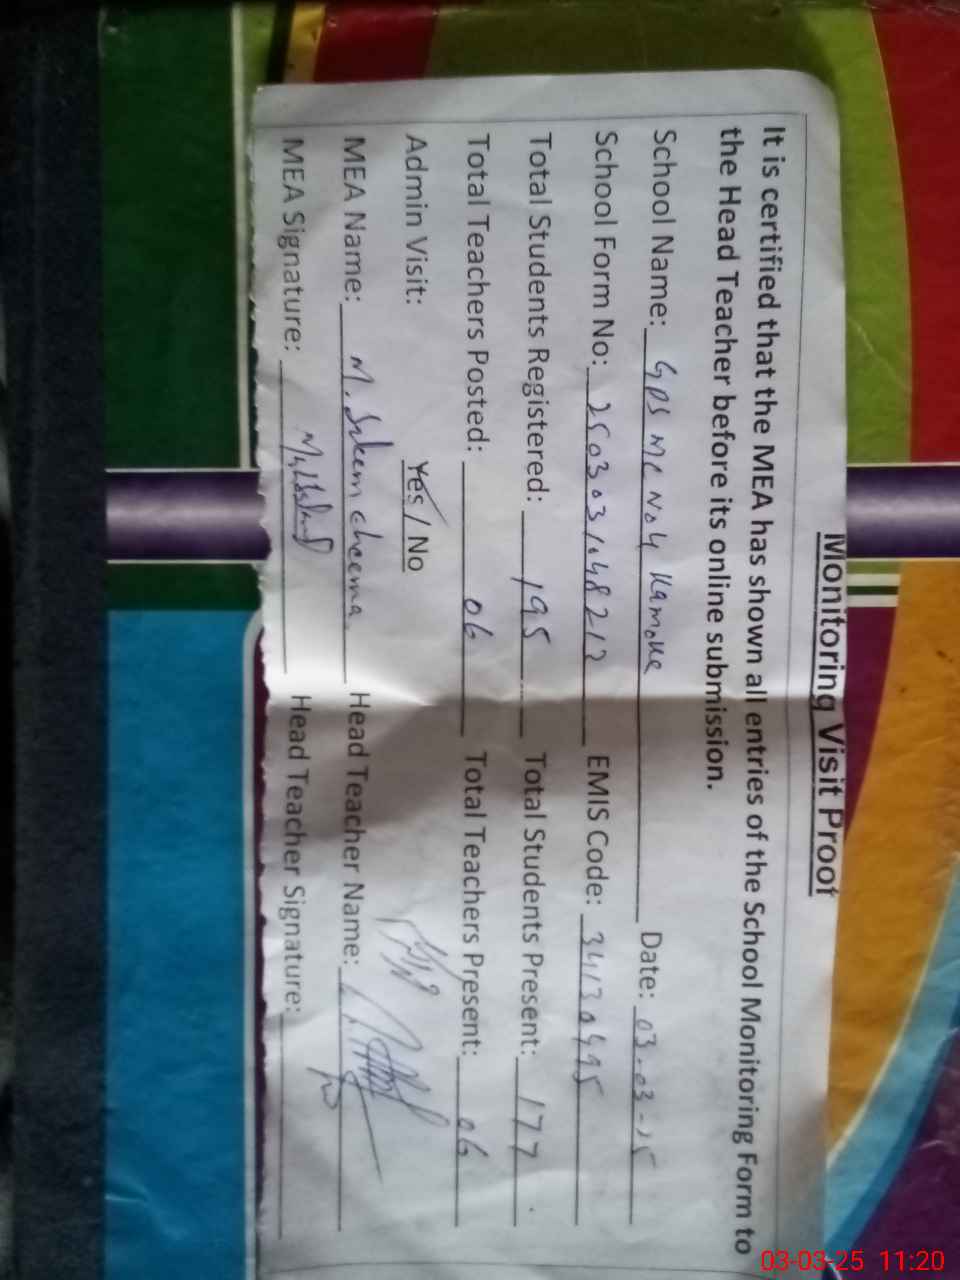 Monitoring Visit Proof
It is certified that the MEA has shown all entries of the School Monitoring Form to
the Head Teacher before its online submission.
School Name: GPS MC No4 Kamoke Date: 03-03-25
School Form No: EMIS Code:
Total Students Registered: 195 Total Students Present: 177
Total Teachers Posted: 06 Total Teachers Present: 06
Admin Visit: Yes / No
MEA Name: M. Saleem cheema Head Teacher Name:
MEA Signature: Head Teacher Signature:
03-03-25 11:20